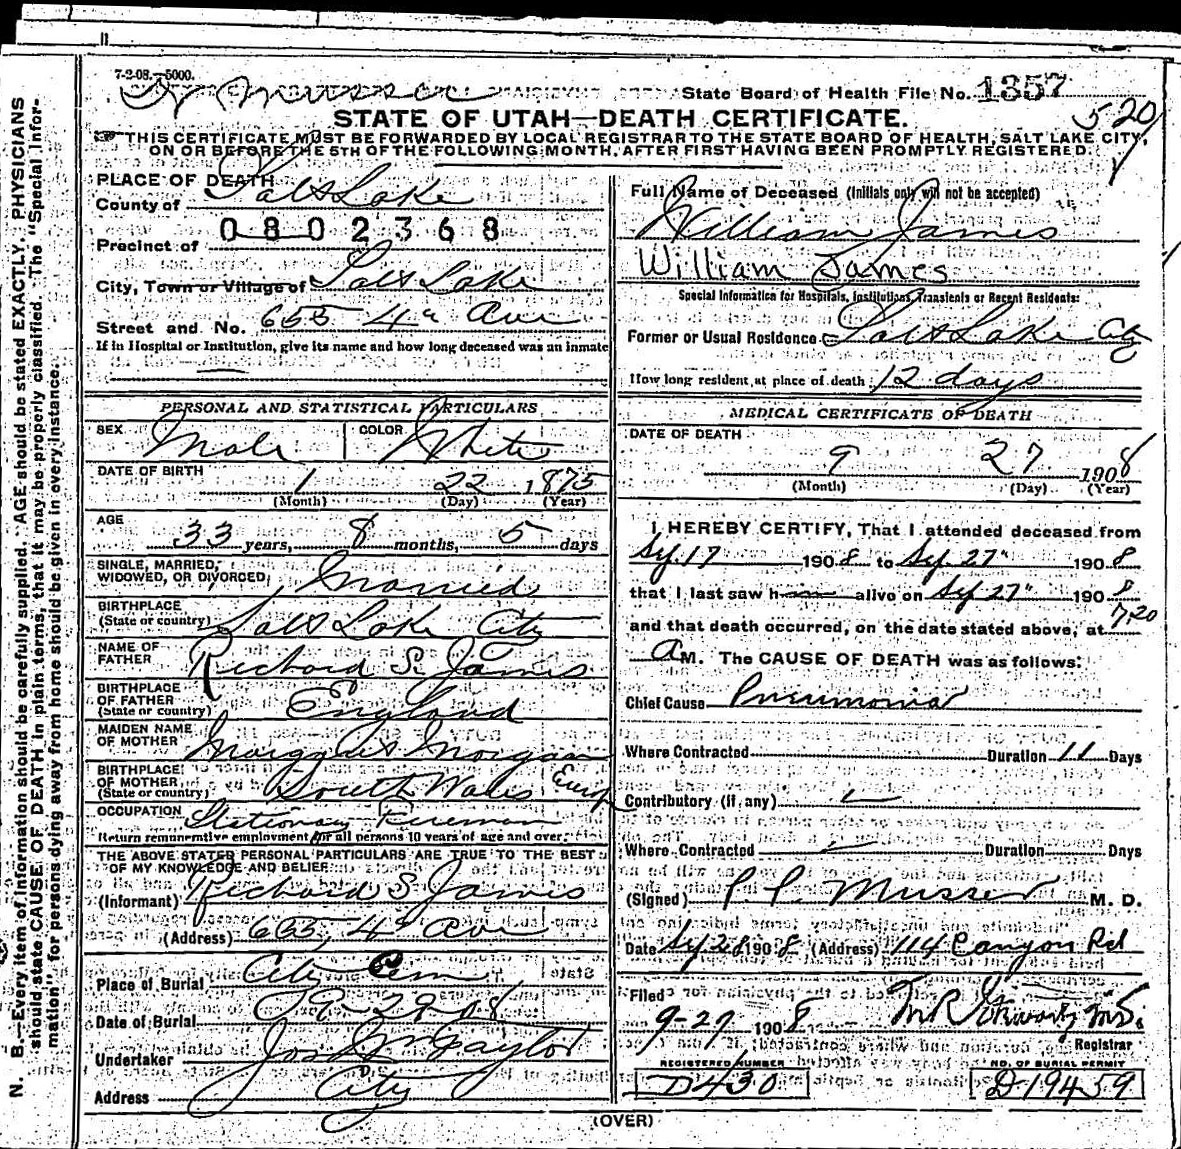 7-2-08.—5000.
State Board of Health File No. 1357
520
STATE OF UTAH—DEATH CERTIFICATE.
THIS CERTIFICATE MUST BE FORWARDED BY LOCAL REGISTRAR TO THE STATE BOARD OF HEALTH, SALT LAKE CITY,
ON OR BEFORE THE 5TH OF THE FOLLOWING MONTH, AFTER FIRST HAVING BEEN PROMPTLY REGISTERED.
PLACE OF DEATH
County of Salt Lake
0802368
Precinct of
City, Town or Village of Salt Lake
Street and No. 655 4th Ave
If in Hospital or Institution, give its name and how long deceased was an inmate
PERSONAL AND STATISTICAL PARTICULARS
SEX Male COLOR White
DATE OF BIRTH 1 22 1875
(Month) (Day) (Year)
AGE
33 years, 8 months, 5 days
SINGLE, MARRIED,
WIDOWED, OR DIVORCED Married
BIRTHPLACE
(State or country) Salt Lake City
NAME OF
FATHER Richard S. James
BIRTHPLACE
OF FATHER
(State or country) England
MAIDEN NAME
OF MOTHER Morgan
BIRTHPLACE
OF MOTHER
(State or country) South Wales
OCCUPATION Stationary Fireman
Return remunerative employment for all persons 10 years of age and over.
THE ABOVE STATED PERSONAL PARTICULARS ARE TRUE TO THE BEST
OF MY KNOWLEDGE AND BELIEF
(Informant) Richard S. James
(Address) 655, 4th Ave
Place of Burial City Cem
Date of Burial 9-29-08
Undertaker Jos Wm Taylor
Address City
Full Name of Deceased (Initials only will not be accepted)
William James
William James
Special Information for Hospitals, Institutions, Transients or Recent Residents:
Former or Usual Residence Salt Lake Cty
How long resident at place of death 12 days
MEDICAL CERTIFICATE OF DEATH
DATE OF DEATH
9 27 1908
(Month) (Day) (Year)
I HEREBY CERTIFY, That I attended deceased from
Sep. 17 1908 to Sep. 27" 1908
that I last saw h alive on Sep 27" 1908
and that death occurred, on the date stated above, at 7.20
A M. The CAUSE OF DEATH was as follows:
Chief Cause Pneumonia
Where Contracted Duration 11 Days
Contributory (if any)
Where Contracted Duration Days
(Signed) P. P. Musser M. D.
Date Sep 28 1908 (Address) 114 Canyon Rd
Filed
9-27 1908
Registrar
REGISTERED NUMBER NO. OF BURIAL PERMIT
D430 D-19459
(OVER)
N. B.—Every item of information should be carefully supplied. AGE should be stated EXACTLY. PHYSICIANS
should state CAUSE OF DEATH in plain terms, that it may be properly classified. The "Special Infor-
mation" for persons dying away from home should be given in every instance.